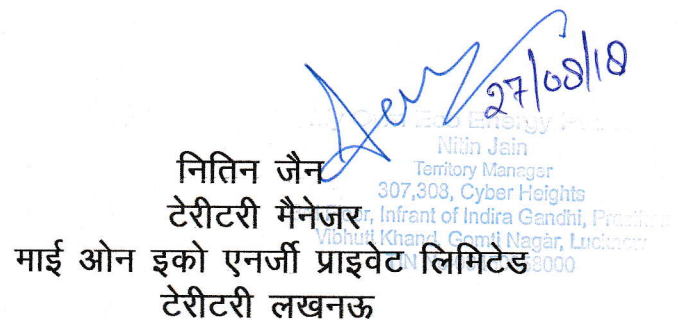 27/08/18
Eco Energy
Nitin Jain
Territory Manager
307,308, Cyber Heights
Infrant of Indira Gandhi,
Vibhuti Khand, Gomti Nagar, Lucknow
नितिन जैन
टेरीटरी मैनेजर
माई ओन इको एनर्जी प्राइवेट लिमिटेड
टेरीटरी लखनऊ